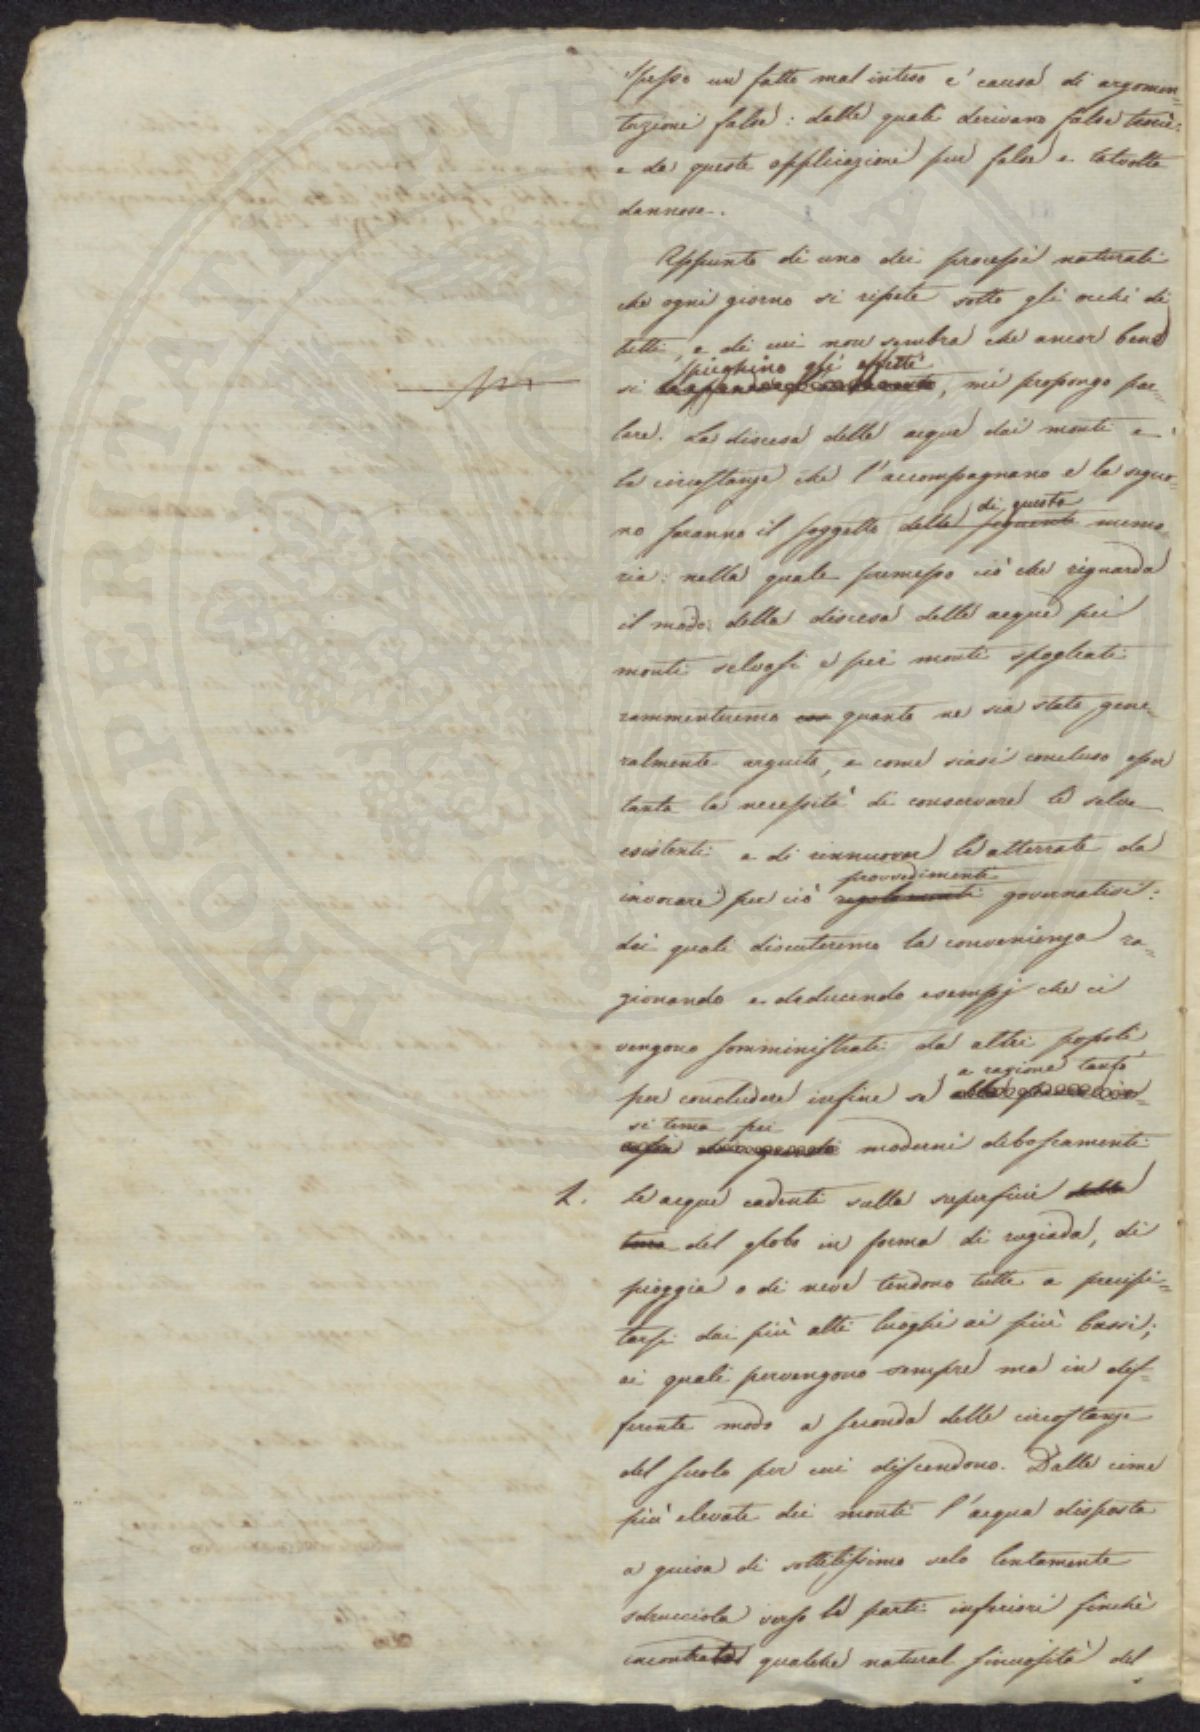 Spesso un fatto mal inteso e' causa di argomen=
tazioni false: dalle quali derivano false teorie:
e da queste applicazioni pur false e talvolta
dannose.
Appunto di uno dei processi naturali
che ogni giorno si ripete sotto gli occhi di
tutti, e di cui non sembra che ancor bene
spieghino gli effetti
si , mi propongo par=
lare. La discesa delle acque dai monti e
le circostanze che l'accompagnano e la seguo=
di questa
no saranno il soggetto della seguente memo=
ria: nella quale premesso ciò che riguarda
il modo della discesa delle acque pei
monti selvosi e pei monti spogliati
rammenteremo quanto ne sia stato gene=
ralmente arguito, e come siasi concluso esser
tanta la necessità di conservare le selve
esistenti e di rinnuovar le atterrate da
provvedimenti
invocare per ciò regolamenti governativi:
dei quali discuteremo la convenienza ra=
gionando e deducendo esempj che ci
vengono somministrati da altri popoli
a ragione tanto
per concludere infine se
si tema pei
moderni diboscamenti
1. Le acque cadenti sulla superficie della
terra del globo in forma di rugiada, di
pioggia o di neve tendono tutte a precipi=
tarsi dai più alti luoghi ai più bassi;
ai quali pervengono sempre ma in dif=
ferente modo a seconda delle circostanze
del suolo per cui discendono. Dalle cime
più elevate dei monti l'acqua disposta
a guisa di sottilissimo velo lentamente
sdrucciola verso le parti inferiori finchè
incontrata qualche natural sinuosità del